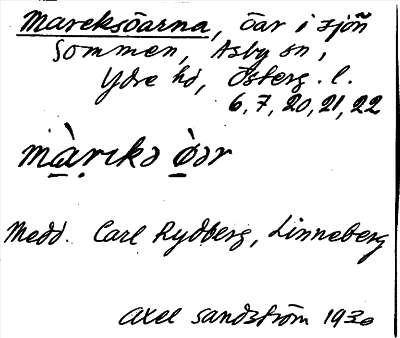 Mareksöarna, öar i sjön
Sommen, Asby sn,
Ydre hd, Österg. l.
6, 7, 20, 21, 22
màrıkə ò̱ər
Medd. Carl Rydberg, Linneberg
Axel Sandström 1930